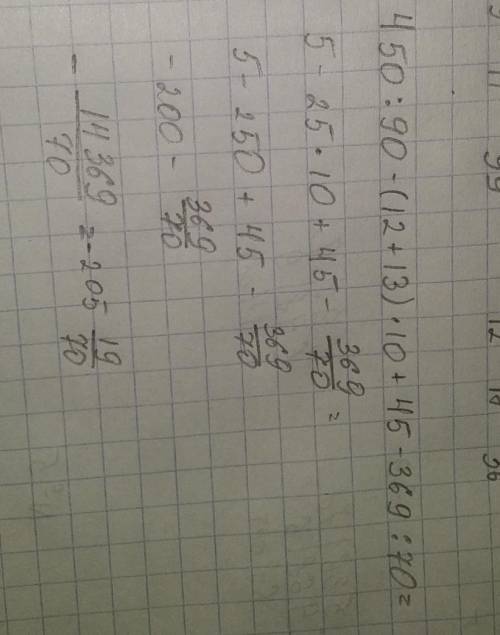 450 : 90 - (12 + 13) · 10 + 45 - 369 : 70 =
5 - 25 · 10 + 45 - 369/70 =
5 - 250 + 45 - 369/70
- 200 - 369/70
- 14369/70 = - 205 19/70